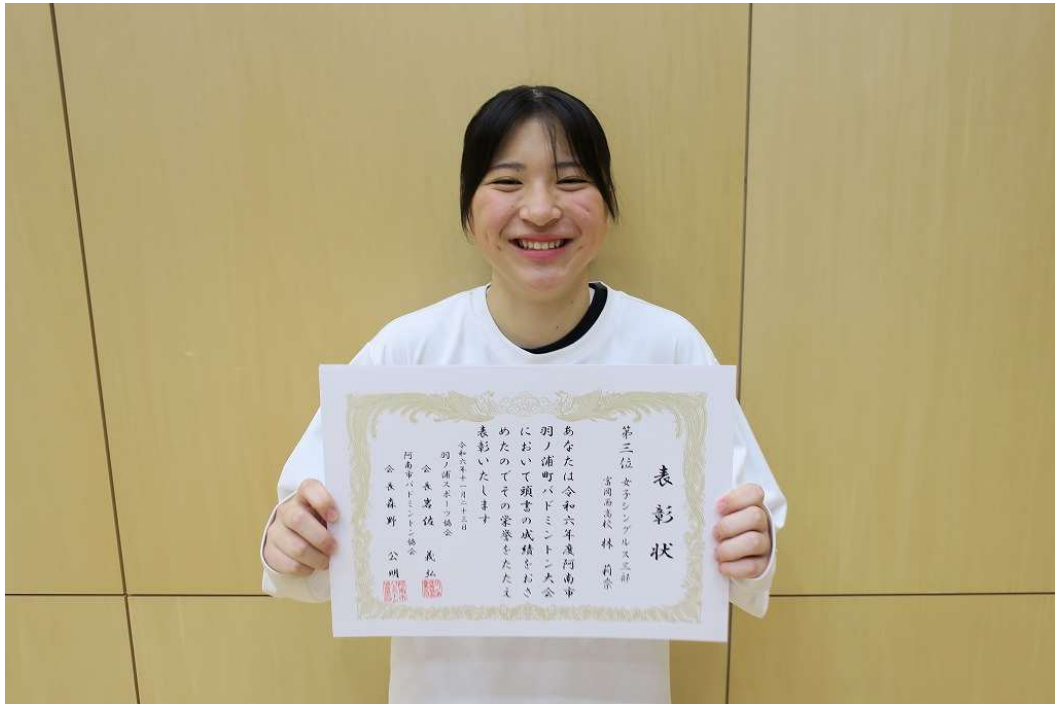 表彰状
第三位 女子シングルス三部
富岡西高校 林 莉奈
あなたは令和六年度阿南市
羽ノ浦町バドミントン大会
において頭書の成績をおさ
めたのでその栄誉をたたえ
表彰いたします
令和六年十一月二十三日
羽ノ浦スポーツ協会
会長 岩佐 義弘
阿南市バドミントン協会
会長 森野 公明